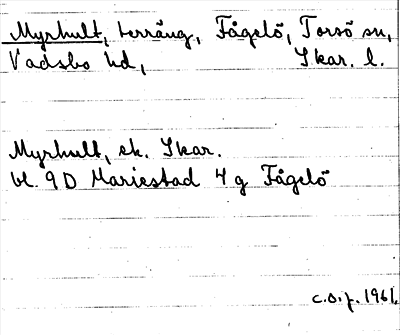 Myrhult, terräng, Fågelö, Torsö sn,
Vadsbo hd, Skar. l.
Myrhult, ek. Skar.
bl. 9D Mariestad 4g Fågelö
c.o.f. 1961.